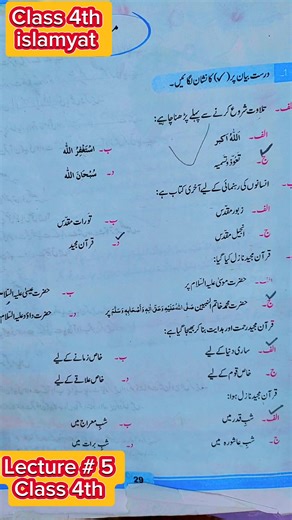 Class 4th
islamyat
درست بیان پر (✓) کا نشان لگائیں۔
الف۔ تلاوت شروع کرنے سے پہلے پڑھنا چاہیے:
الف۔ اَللّٰهُ اَكبر ب۔ اَسْتَغْفِرُ الله
ج۔ تعوّذ و تسمیہ د۔ سُبْحَانَ الله
ب۔ انسانوں کی رہنمائی کے لیے آخری کتاب ہے:
الف۔ زبور مقدّس ب۔ تورات مقدّس
ج۔ انجیل مقدّس د۔ قرآن مجید
قرآن مجید نازل کیا گیا:
الف۔ حضرت موسیٰ علیہ السلام پر ب۔ حضرت عیسیٰ علیہ السلام
ج۔ حضرت محمد خاتم النبیین صَلَّى اللهُ عَلَيْهِ وَعَلٰى آلِهٖ وَأَصْحَابِهٖ وَسَلَّمَ پر د۔ حضرت داؤد علیہ
قرآن مجید رحمت اور ہدایت بنا کر بھیجا گیا ہے:
الف۔ ساری دنیا کے لیے ب۔ خاص زمانے کے لیے
ج۔ خاص قوم کے لیے د۔ خاص علاقے کے لیے
قرآن مجید نازل ہوا:
الف۔ شبِ قدر میں ب۔ شبِ معراج میں
ج۔ شبِ عاشورہ میں د۔ شبِ برات میں
Lecture # 5
Class 4th
29